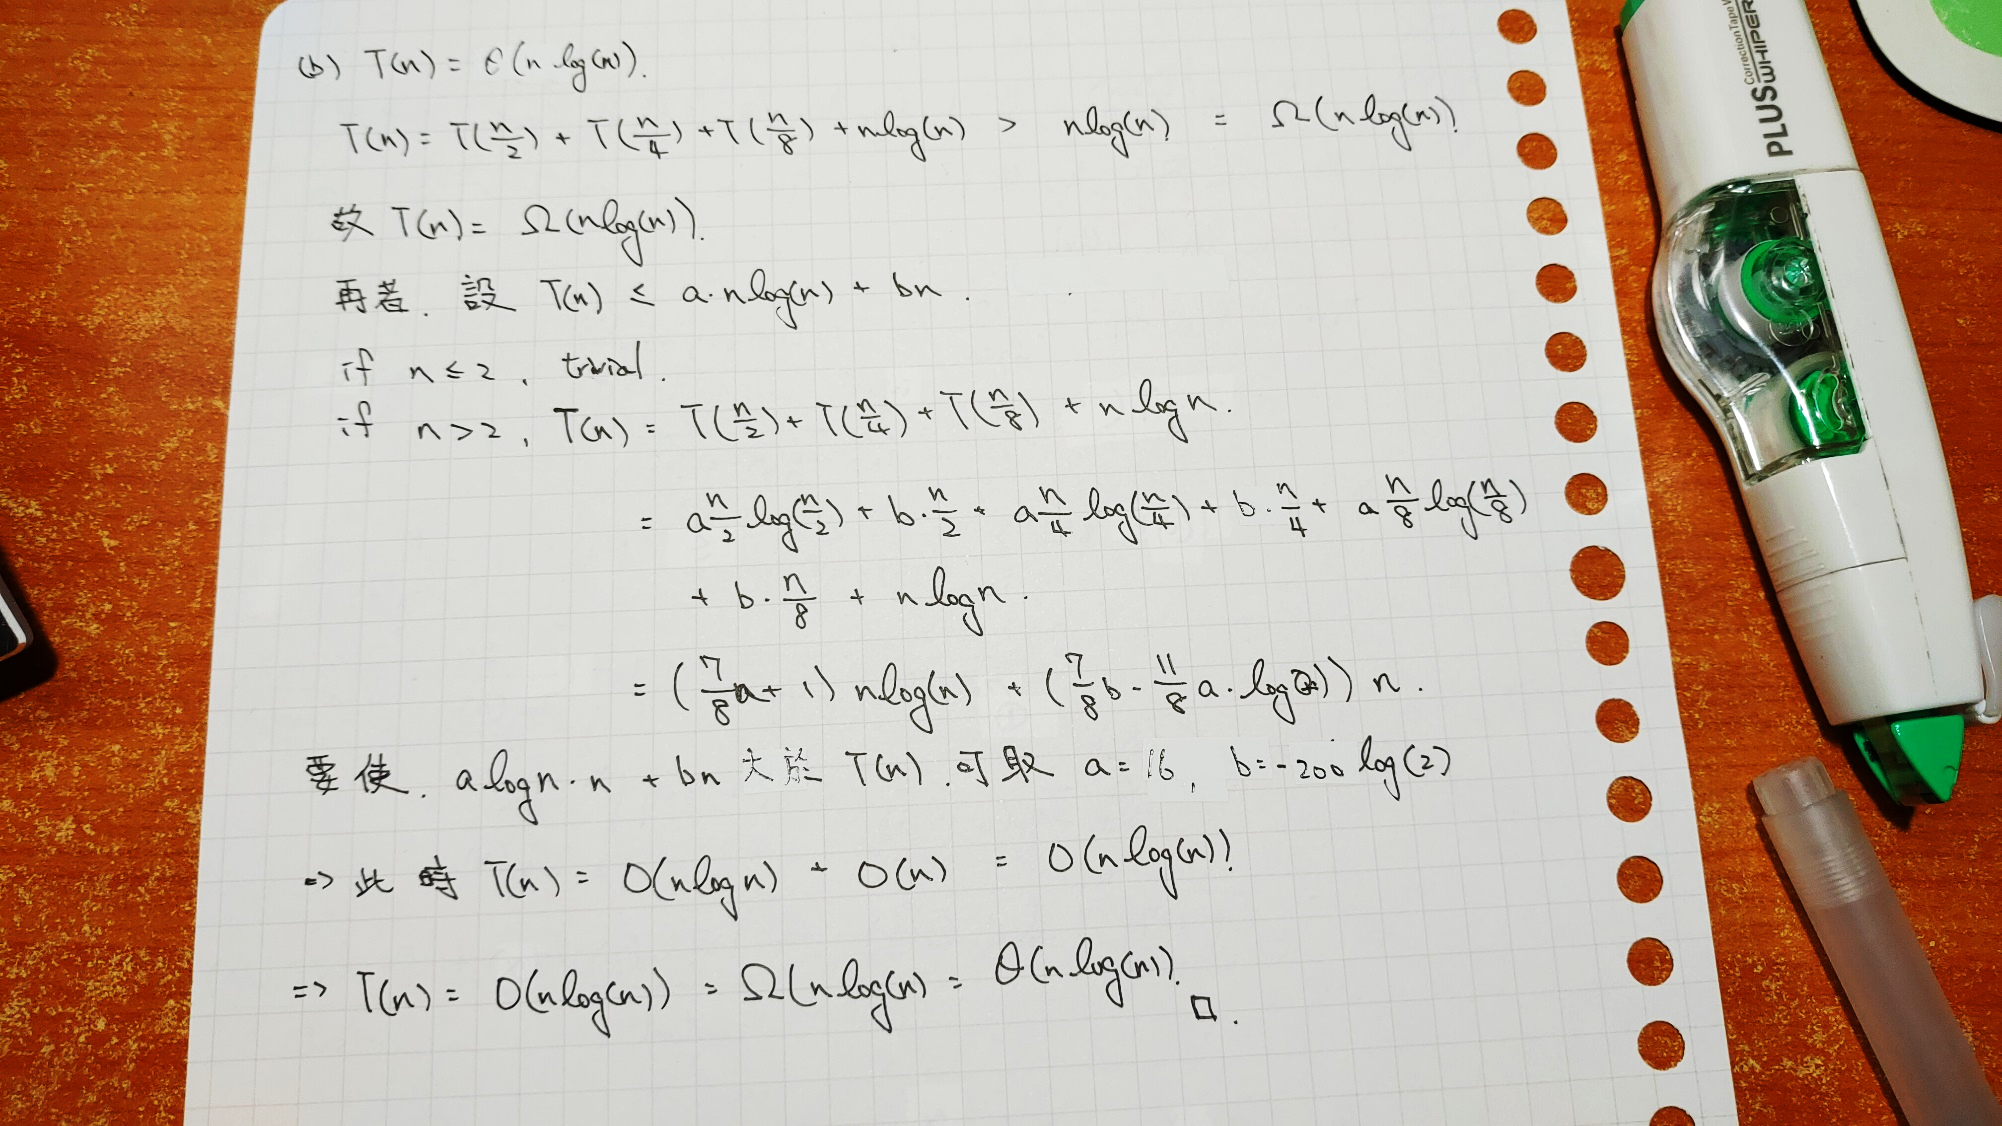 (b) T(n) = Θ(n log(n)).
T(n) = T(n/2) + T(n/4) + T(n/8) + nlog(n) > nlog(n) = Ω(n log(n)).
故 T(n) = Ω(nlog(n)).
再者. 設 T(n) ≤ a·nlog(n) + bn.
if n ≤ 2, trivial.
if n > 2, T(n) = T(n/2) + T(n/4) + T(n/8) + n log n.
= a n/2 log(n/2) + b·n/2 + a n/4 log(n/4) + b·n/4 + a n/8 log(n/8)
+ b·n/8 + n log n.
= (7/8 a + 1) nlog(n) + (7/8 b - 11/8 a·log(2)) n.
要使. a log n·n + bn 大於 T(n). 可取 a = 16, b = -200 log(2)
=> 此時 T(n) = O(nlog n) + O(n) = O(n log(n)).
=> T(n) = O(nlog(n)) = Ω(n log(n) = Θ(n log(n)). □.
PLUS WHIPER
Correction Tape